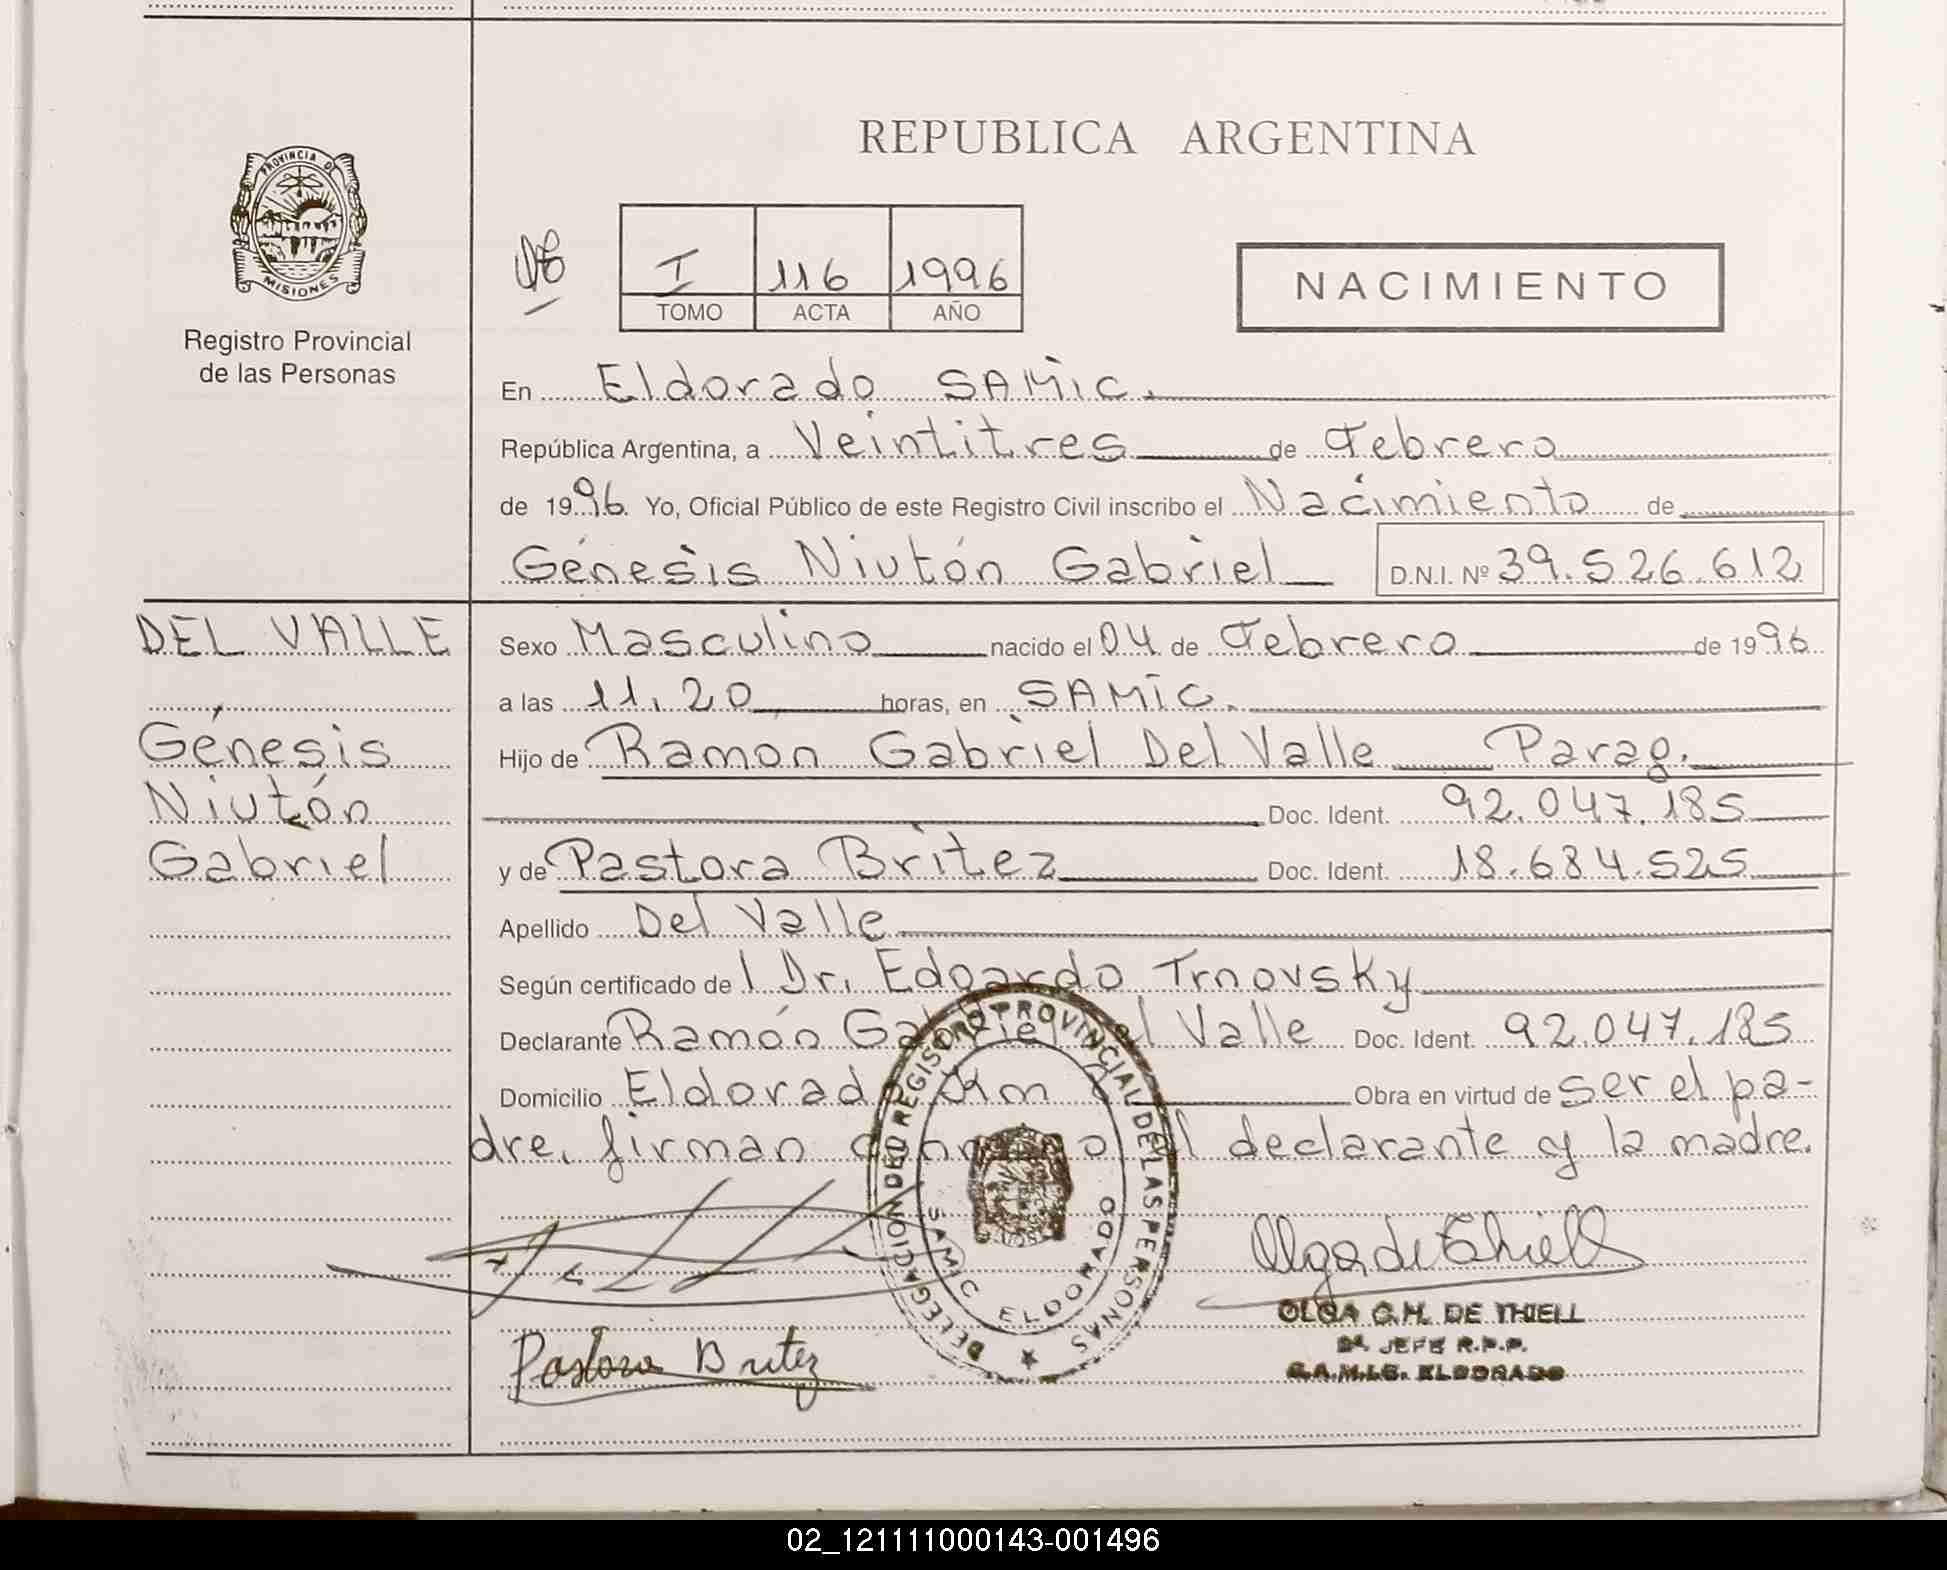 PROVINCIA DE
MISIONES
Registro Provincial
de las Personas
REPUBLICA ARGENTINA
I 116 1996
TOMO ACTA AÑO
NACIMIENTO
En Eldorado SAMIC.
República Argentina, a Veintitres de Febrero
de 1996 Yo, Oficial Público de este Registro Civil inscribo el Nacimiento de
Génesis Niutón Gabriel D.N.I. Nº 39.526.612
DEL VALLE
Génesis
Niutón
Gabriel
Sexo Masculino nacido el 04 de Febrero de 1996
a las 11.20 horas, en SAMIC.
Hijo de Ramón Gabriel Del Valle Parag.
Doc. Ident. 92.047.185
y de Pastora Britez Doc. Ident. 18.684.525
Apellido Del Valle
Según certificado de l Dr. Edgardo Trnovsky
Declarante Ramón Gabriel Del Valle Doc. Ident. 92.047.185
Domicilio Eldorado Km Obra en virtud de ser el pa-
dre, firman conmigo el declarante y la madre.
DELEGACION DEL REGISTRO PROVINCIAL DE LAS PERSONAS
SAMIC ELDORADO
Olga de Thiell
OLGA G.H. DE THIELL
JEFE R.P.P.
S.A.M.I.C. ELDORADO
Pastora Britez
02_121111000143-001496